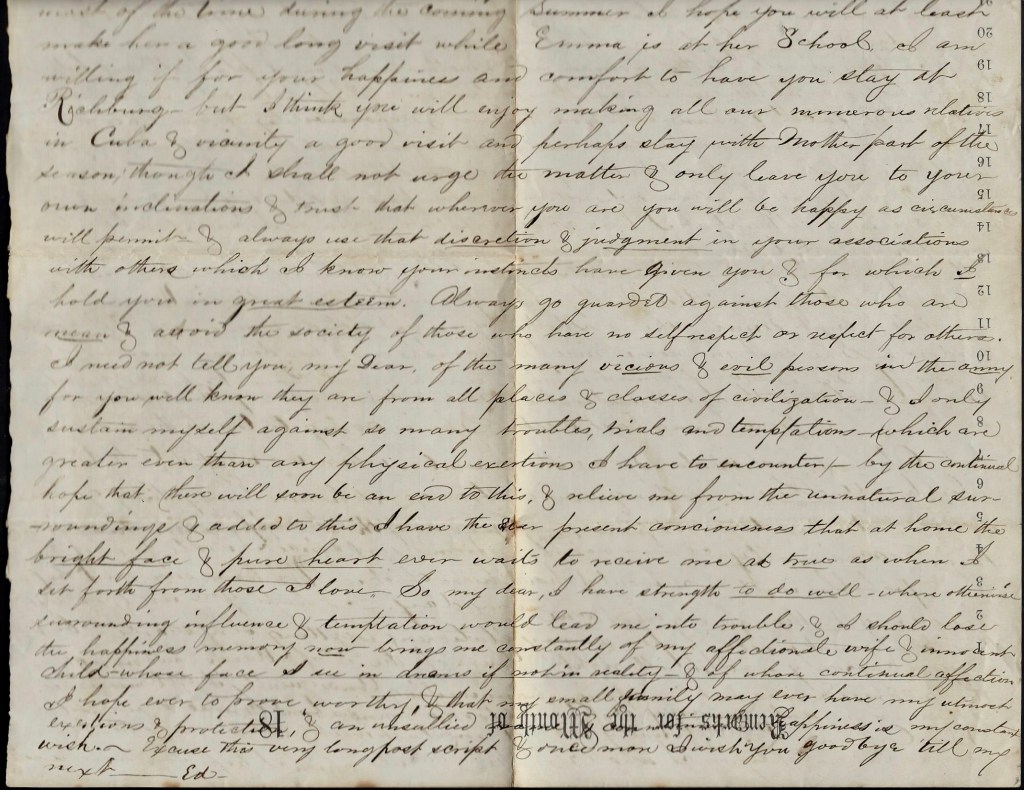 most of the time during the coming Summer I hope you will at least
make her a good long visit while Emma is at her School. I am
willing if for your happiness and comfort to have you stay at
Richburg but I think you will enjoy making all our numerous relatives
in Cuba & vicinity a good visit and perhaps stay with Mother part of the
season, though I shall not urge the matter & only leave you to your
own inclinations & trust that wherever you are you will be happy as circumstances
will permit & always use that discretion & judgment in your associations
with others which I know your instincts have given you & for which I
hold you in great esteem. Always go guarded against those who are
mean & avoid the society of those who have no self respect or respect for others.
I need not tell you, my Dear, of the many vicious & evil persons in the army
for you well know they are from all places & classes of civilization - & I only
sustain myself against so many troubles, trials and temptations - (which are
greater even than any physical exertions I have to encounter) - by the continual
hope that there will soon be an end to this, & relieve me from the unnatural sur-
-roundings & added to this I have the ever present consciousness that at home the
bright face & pure heart ever waits to receive me as true as when I
set forth from those I love. So my dear, I have strength to do well - where otherwise
surrounding influence & temptation would lead me into trouble, & I should lose
the happiness memory now brings me constantly of my affectionate wife & innocent
child - whose face I see in dreams if not in reality - & of whose continual affection
I hope ever to prove worthy, & that my small family may ever have my utmost
exertions & protection, & an unsullied happiness is my constant
wish. Excuse this very long post script & once more I wish you goodbye till my
next Ed
Remarks for the Month of 18
20
19
18
17
16
15
14
13
12
11
10
9
8
6
5
4
3
2